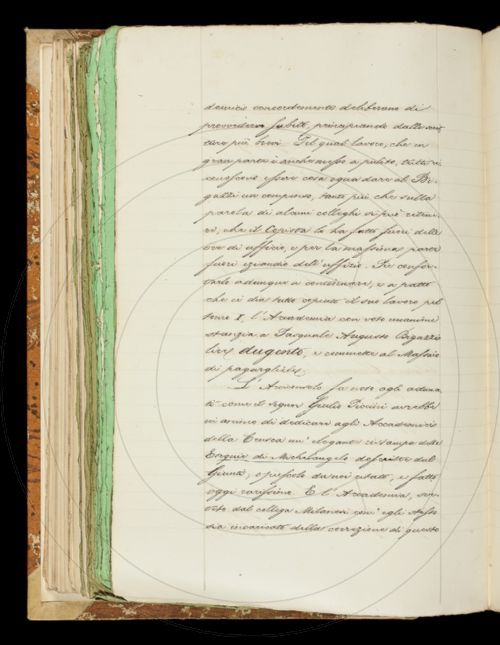 demici concordemente deliberano di
provvedere subito, principiando dallo scri
tore più Il qual lavoro, che in
gran parte è anche messo a pulito, tutti ri
conoscono essere cosa equa dare al Bi-
gazzi un compenso, tanto più che sulla
parola di alcuni colleghi si può ritene-
re, che il Copista lo ha fatto fuori delle
ore di ufficio, e per la massima parte
fuori eziandio dell'uffizio. Per confor-
tarlo adunque a continuare, e a patto
che ci dia tutto copiato il suo lavoro pel
tomo I, l'Accademia con voto unanime
stanzia a Pasquale Augusto Bigazzi
lire dugento, e commette al Massaio
di pagargliele.
L'Arciconsolo fa noto agli aduna-
ti come il signor Giulio Piccini avrebbe
in animo di dedicare agli Accademici
della Crusca un' elegante ristampa delle
Esequie di Michelangelo descritte dal
Giunti, e spesso da noi citate, e fatte
oggi rarissime. E l'Accademia,
dal collega Milanesi com' egli stesso
sia incaricato della correzione di questo